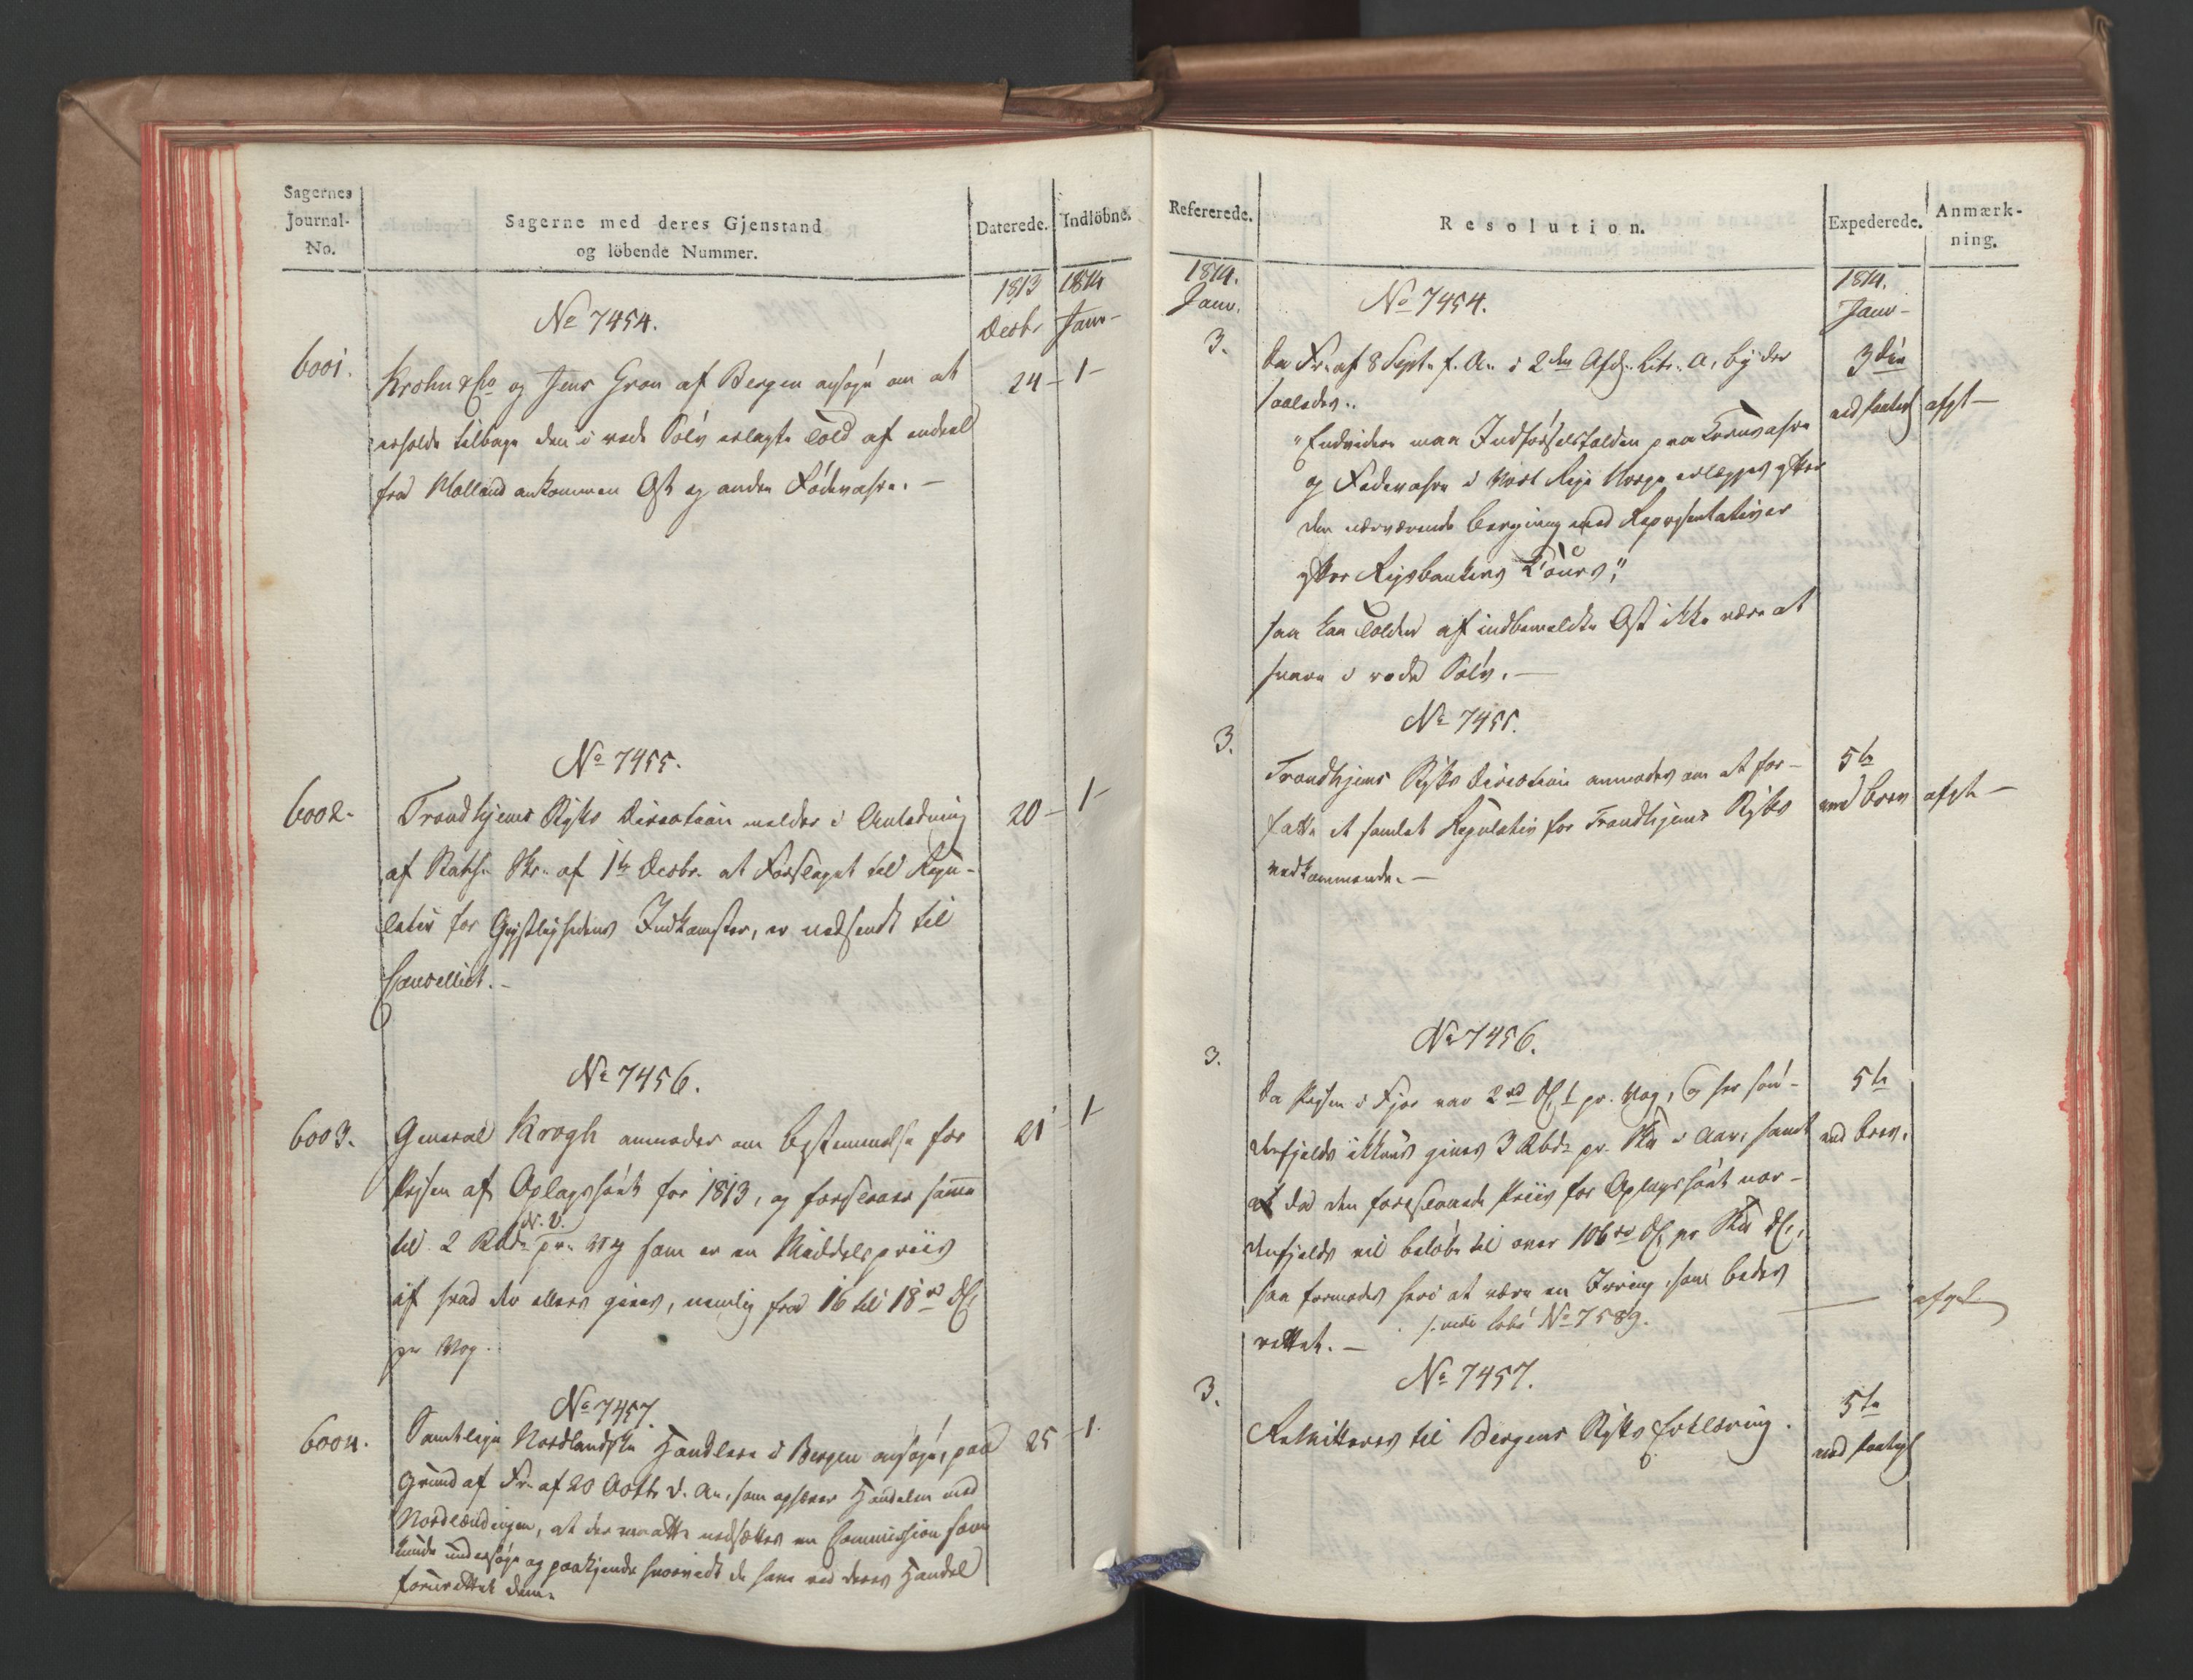 Sagernes
Journal-
No.
Sagerne med deres Gjenstand
og löbende Nummer.
Daterede.
Indlöbne.
1813
Decbr
1814
Janr-
No 7454.
6001.
Krohn & Co og Jens Gran af Bergen ansøge om at
erholde tilbage den i rede Sølv erlagte Told af endeel
fra Holland ankommen Ost og andre Fødevahre. —
24 –
1 –
No 7455.
6002.
Trondhjems Stifts Direction melder i Anledning
af Skr. af 1te Decbr. at Forslaget til Regu-
lativ for Geistlighedens Indkomster, er nedsendt til
Cancelliet. –
20 –
1 –
No 7456.
6003.
General Krogh anmoder om Bestemmelse for
Prisen af Oplagshöet for 1813, og foreslaaer samme
til 2 Rbd. pr. Vog som er en Middelpriis
af hvad der ellers gives, nemlig fra 16 til 18
pr Vog.
21
1
No 7457.
6004.
Samtlige Nordlandske Handlere i Bergen ansøge, paa
Grund af Fr. af 20 Octbr d. A., som ophæver Handelen med
Nordlændingen, at der maatte nedsættes en Commission som
kunde undersøge og paakjende hvorvidt de have ved deres Handel
forurettet dem.
25
1.
Refererede.
Resolution.
Expederede.
Anmærk-
ning.
1814.
Janv.
1814.
Janv –
No 7454.
3.
Da Fr. af 8 Septr f. A. i 2den Afd. Litr. A, byder
saaledes:
"Endvidere maa Indførselstolden paa Kornvahre
og Fødevahre i Vort Rige Norge erlægges efter
den nærværende Beregning med Repræsentativer
efter Rigsbankens Cours,"
saa kan Tolden af indbemeldte Ost ikke være at
svare i rede Sølv. —
3die
afgt —
No 7455.
3.
Trondhjems Stifts Direction anmodes om at for-
fatte et samlet Regulativ for Trondhjems Stifts
vedkommende. —
5te
med Brev
afgt —
No 7456.
3.
Da Prisen i Fjor var 2 pr. Vog, og her søn-
denfjelds ikkuns gives 3 Rbd. pr. i Aar, samt
at da den foreslaaede Priis for Oplagshöet nor-
denfjelds vil beløbe til over 106 pr
saa formodes heri at være en Irring, som bedes
rettet. —
vide No 7589.
5te
med Brev.
afgt
No 7457.
3.
Remitteres til Bergens Stifts Erklæring.
5te